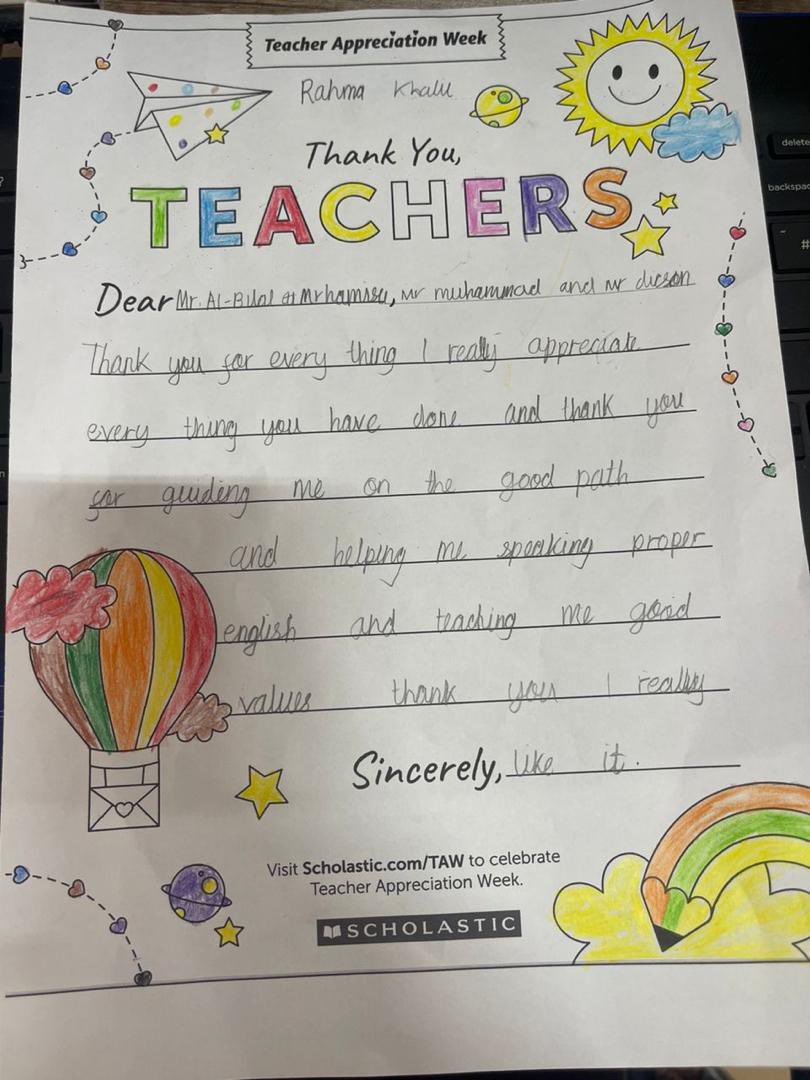 Teacher Appreciation Week
Rahma Khalil
Thank You,
TEACHERS
Dear Mr. Al-Bilal Mr hamisu, Mr muhammad and Mr dicson
Thank you for every thing I really appreciate
every thing you have done and thank you
for guiding me on the good path
and helping me speaking proper
english and teaching me good
values thank you I really
Sincerely, like it.
Visit Scholastic.com/TAW to celebrate
Teacher Appreciation Week.
SCHOLASTIC
delete
backspac